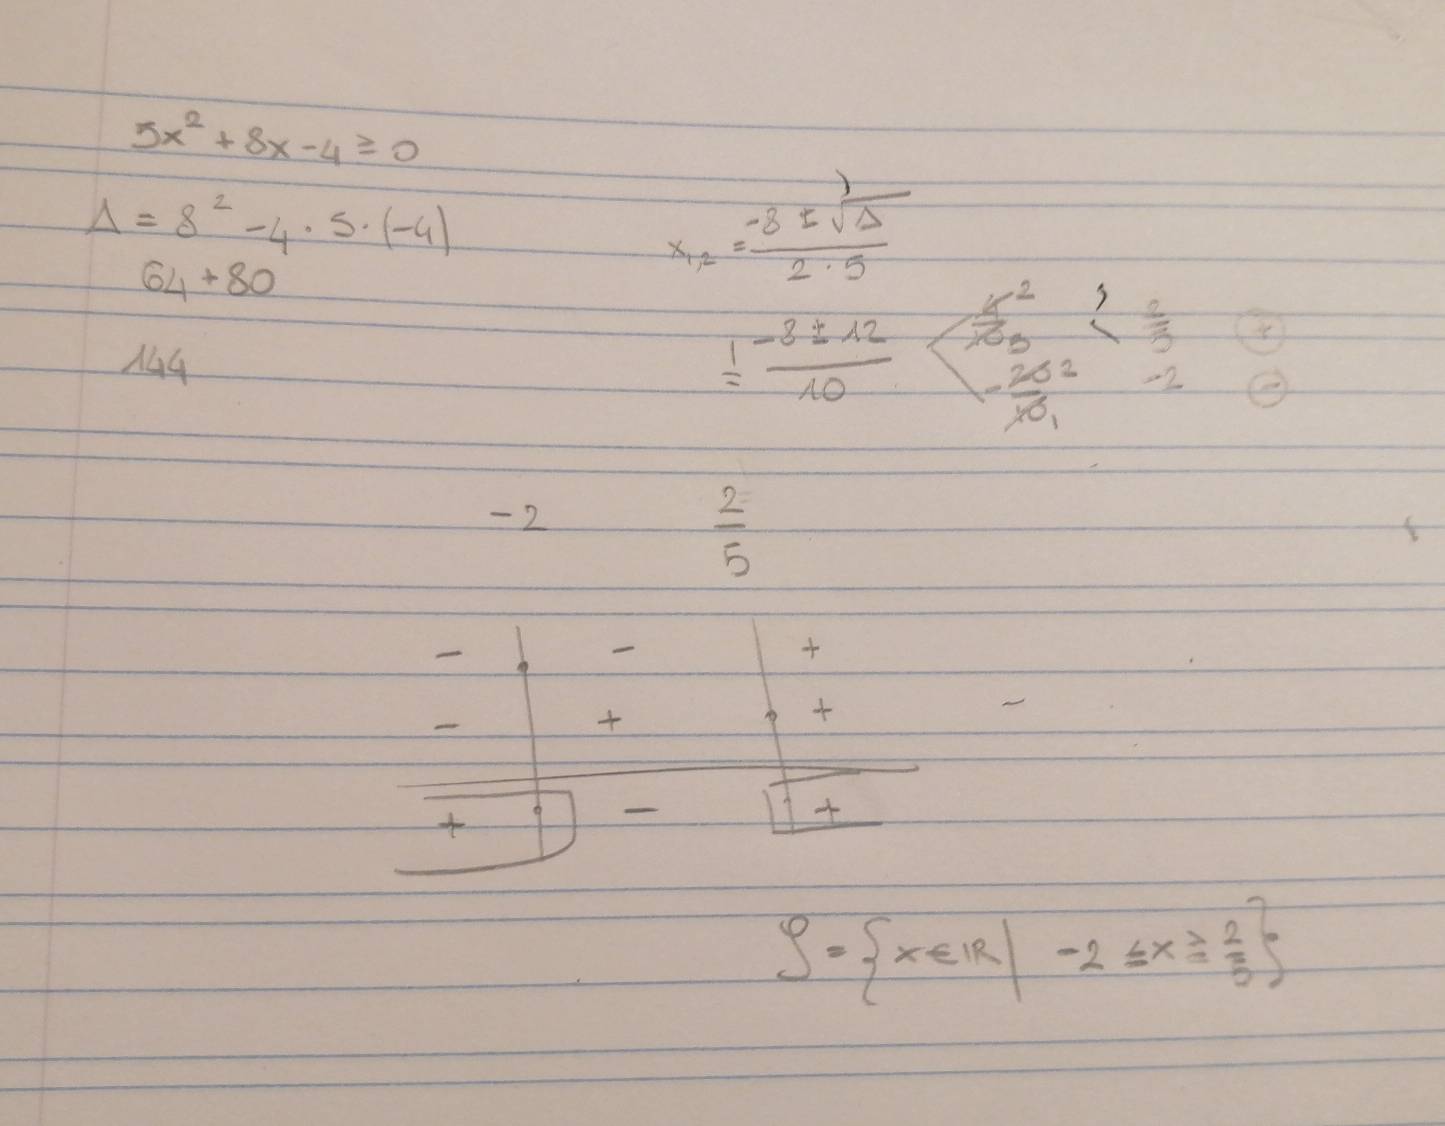 5x² + 8x - 4 ≥ 0
Δ = 8² - 4 · 5 · (-4)
64 + 80
144
x₁,₂ = (-8 ± √Δ) / (2 · 5)
= (-8 ± 12) / 10 < 4/10 2 5 < 2/5 +
- 20/10 2 1 -2 -
-2 2/5
- - +
- + + -
+ - +
S = { x ∈ ℝ | -2 ≤ x ≥ 2/5 }